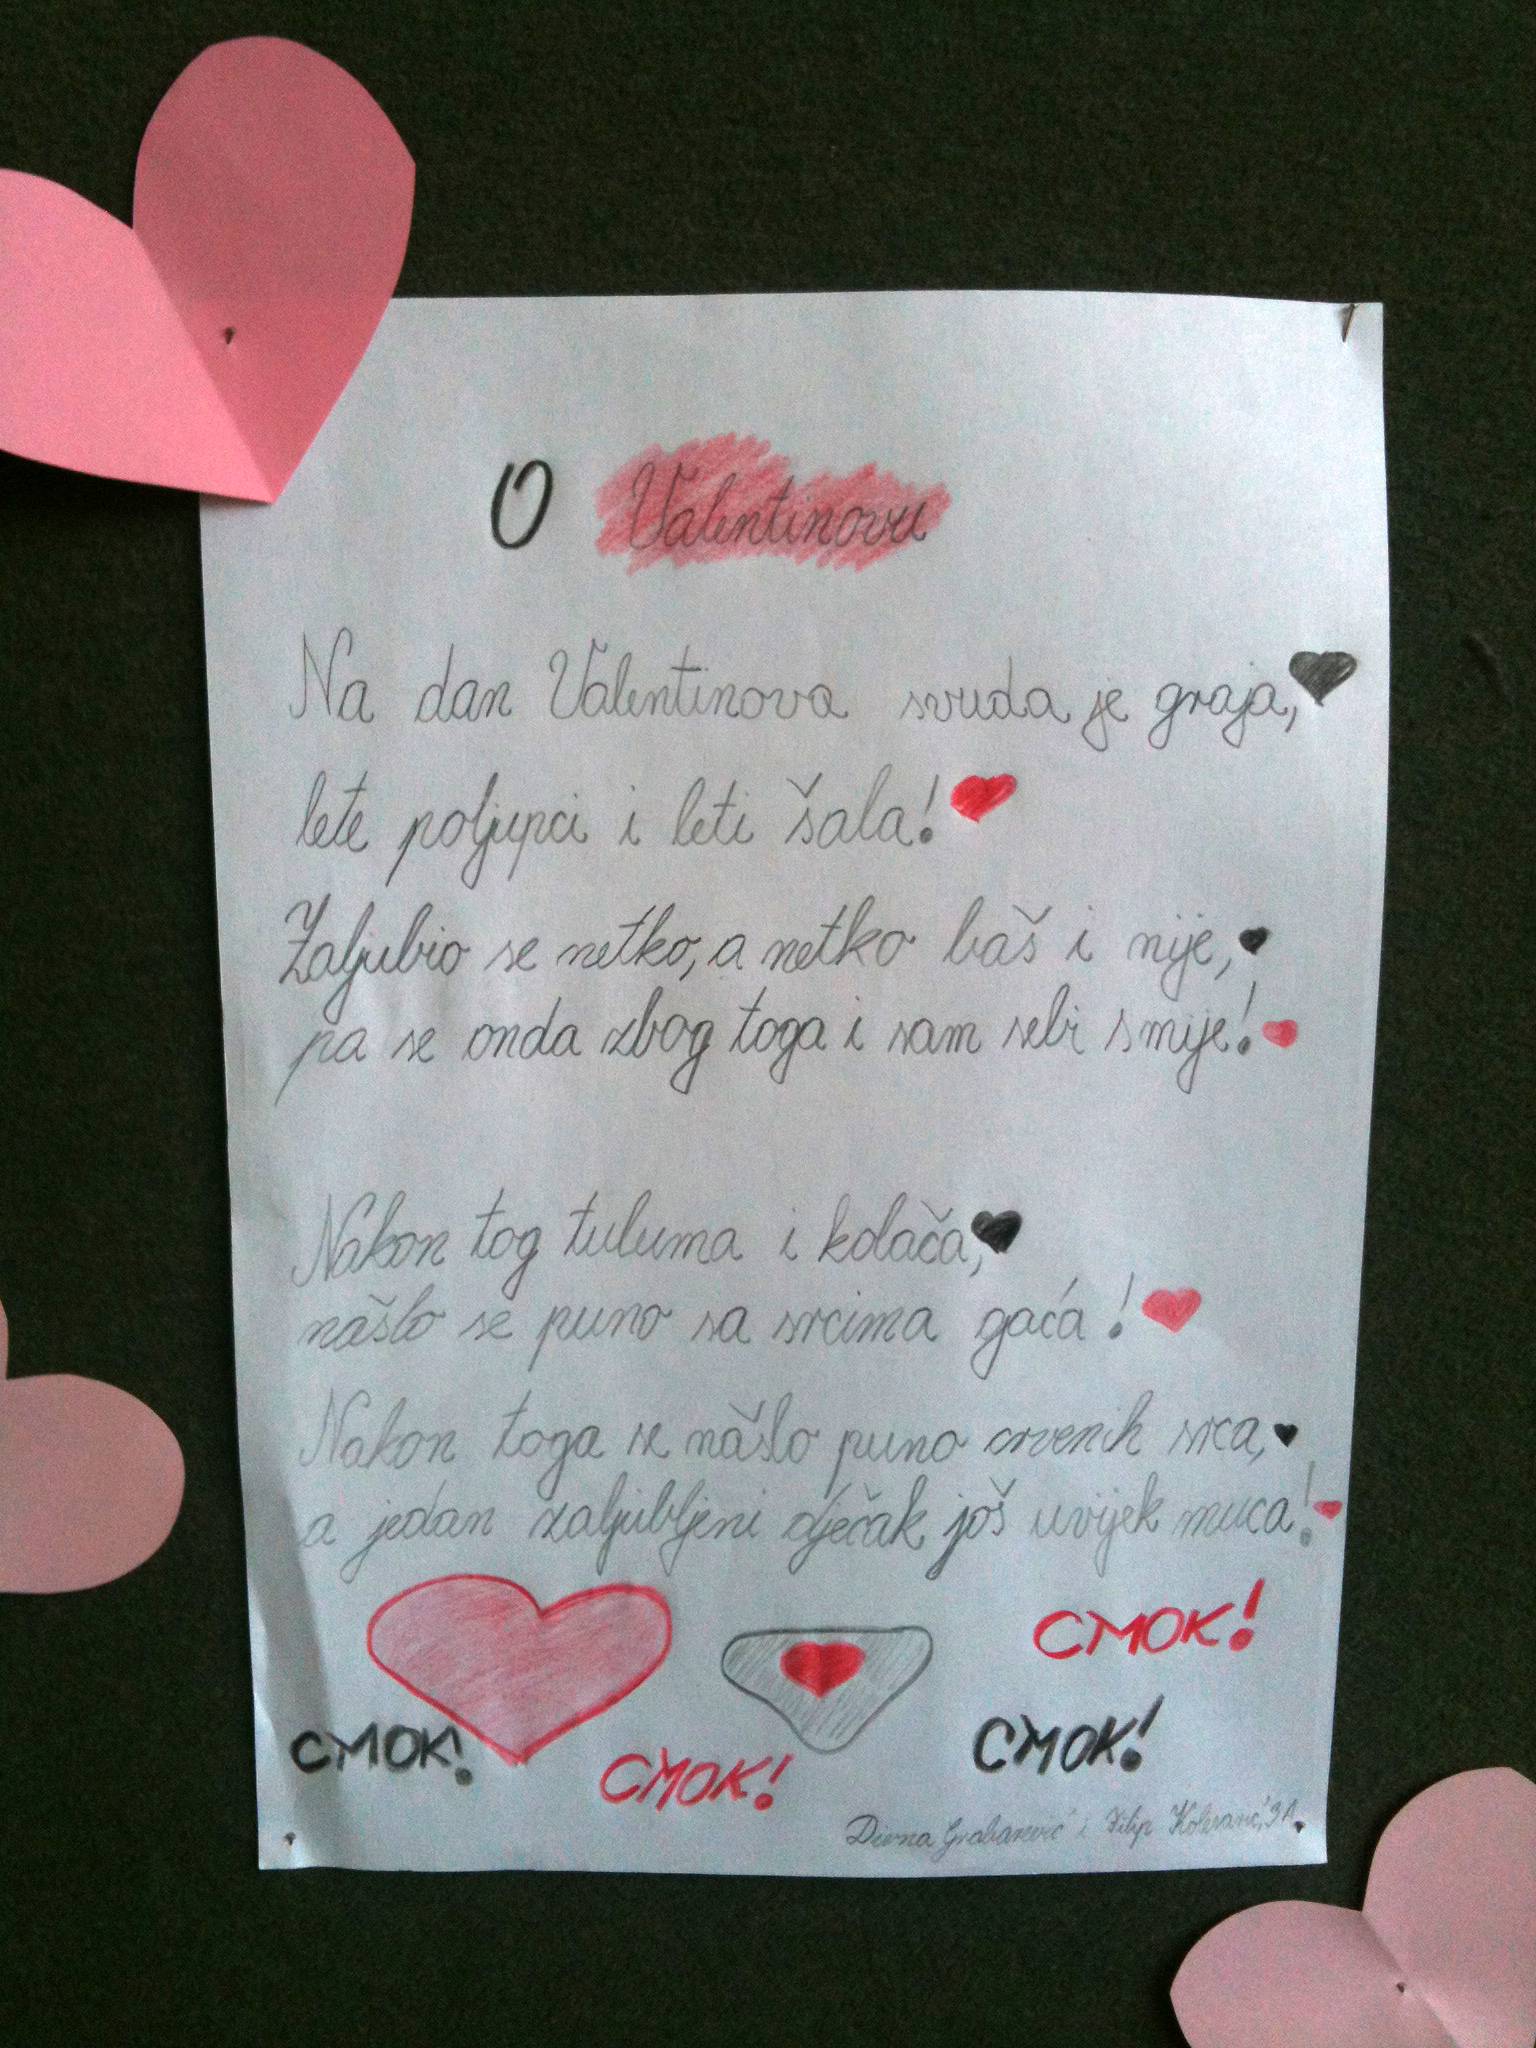 O Valentinovu
Na dan Valentinova svuda je graja,
lete poljupci i leti šala!
Zaljubio se netko, a netko baš i nije,
pa se onda zbog toga i sam sebi smije!
Nakon tog tuluma i kolača,
našlo se puno sa srcima gaća!
Nakon toga se našlo puno crvenih srca,
a jedan zaljubljeni dječak još uvijek muca!
CMOK!
CMOK!
CMOK!
CMOK!
Divna Grabarević i Filip